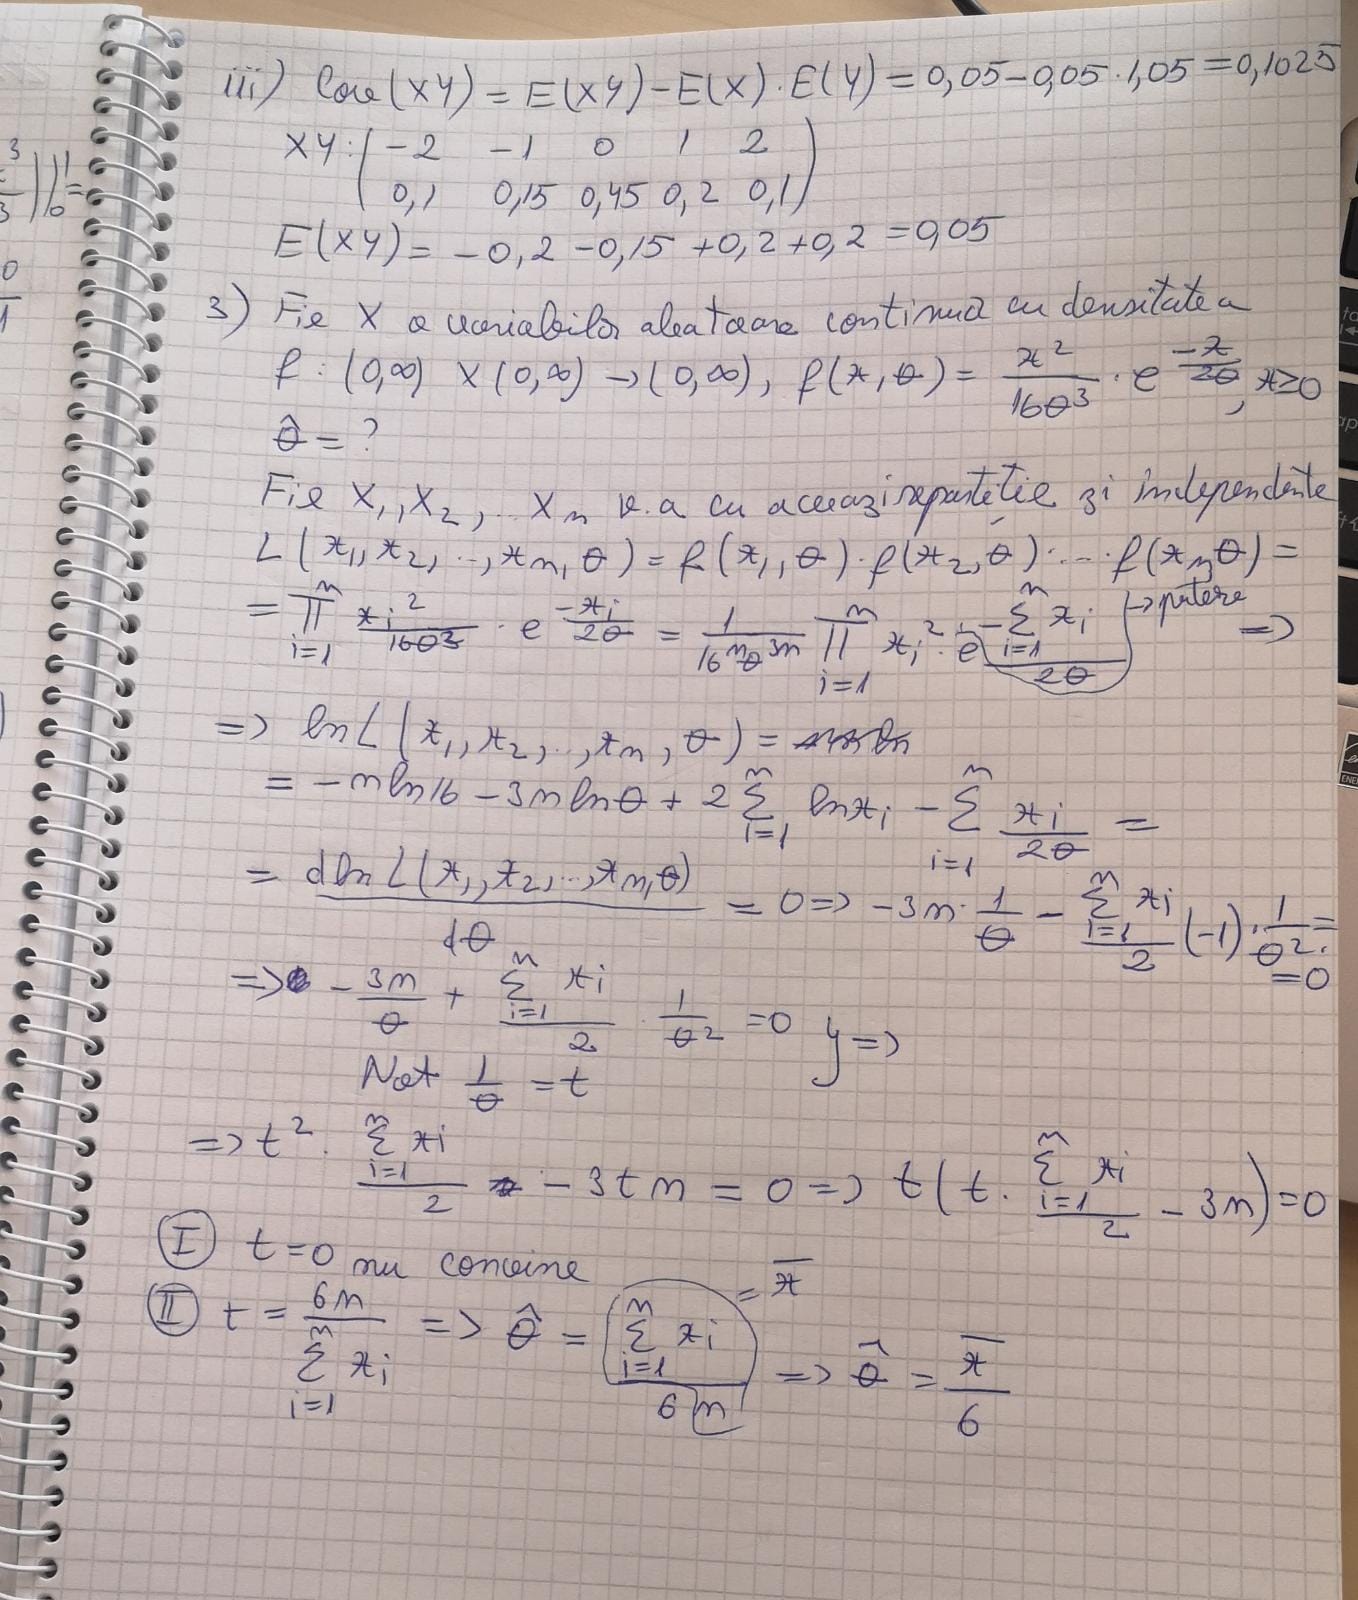 iii) Cov(XY) = E(XY) - E(X) · E(Y) = 0,05 - 0,05 · 1,05 = 0,1025
XY: ( -2 -1 0 1 2 )
( 0,1 0,15 0,45 0,2 0,1 )
E(XY) = -0,2 - 0,15 + 0,2 + 0,2 = 0,05
3) Fie X o variabilă aleatoare continuă cu densitatea
f : (0,∞) × (0,∞) → (0,∞), f(x, θ) = x²/16θ³ · e^(-x/2θ), x≥0
θ̂ = ?
Fie X₁, X₂, ... Xₙ v.a cu aceeași repartiție și independente
L(x₁, x₂, .., xₙ, θ) = f(x₁, θ) · f(x₂, θ) · ... · f(xₙ, θ) =
= ∏ᵢ₌₁ⁿ xᵢ²/16θ³ · e^(-xᵢ/2θ) = 1/(16ⁿθ³ⁿ) ∏ᵢ₌₁ⁿ xᵢ² · e^(-∑ᵢ₌₁ⁿ xᵢ/2θ) → putere =>
=> ln L(x₁, x₂, .., xₙ, θ) =
= -n ln 16 - 3n ln θ + 2 ∑ᵢ₌₁ⁿ ln xᵢ - ∑ᵢ₌₁ⁿ xᵢ/2θ =
= d ln L(x₁, x₂, .., xₙ, θ)/dθ = 0 => -3n · 1/θ - ∑ᵢ₌₁ⁿ xᵢ/2 (-1) · 1/θ² = = 0
=> -3n/θ + ∑ᵢ₌₁ⁿ xᵢ/2 · 1/θ² = 0 } =>
Not 1/θ = t
=> t² · ∑ᵢ₌₁ⁿ xᵢ/2 - 3tn = 0 => t(t · ∑ᵢ₌₁ⁿ xᵢ/2 - 3n) = 0
I t = 0 nu convine
II t = 6n/∑ᵢ₌₁ⁿ xᵢ => θ̂ = ∑ᵢ₌₁ⁿ xᵢ/6n = x̄ => θ̂ = x̄/6